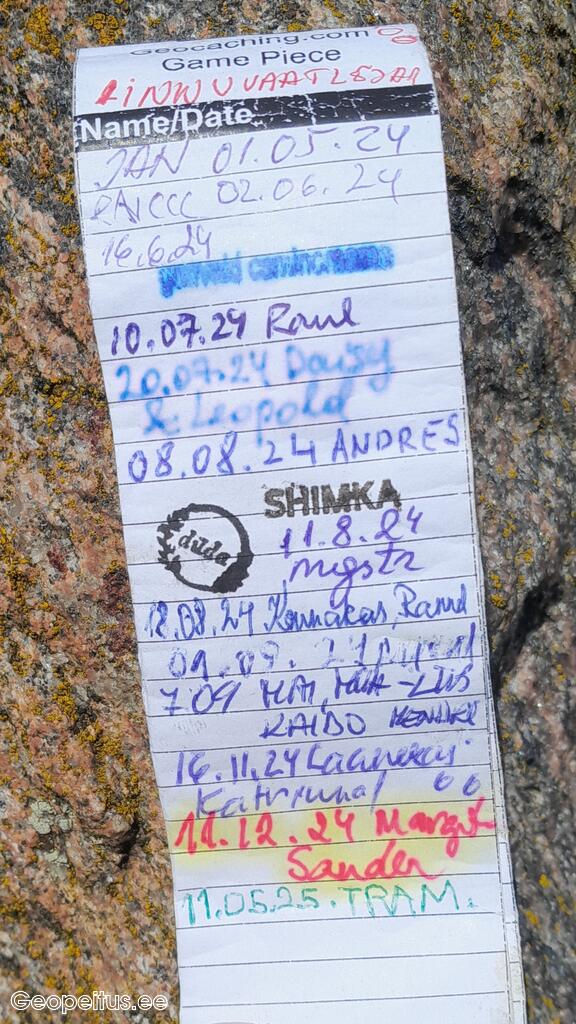 Geocaching.com
Game Piece
LiNNUVAATLEJAD
Name/Date
JAN 01.05.24
02.06.24
16.6.24
10.07.24 Raul
20.07.24 Daisy
& Leopold
08.08.24 ANDRES
SHIMKA
duda
11.8.24
mgstr
18.08.24 Konnakas, Raul
01.09.
7.09 MAI, LIIS
KAIDO
16.11.24
11.12.24 Margit
Sander
11.05.25.TRAM.
Geopeitus.ee